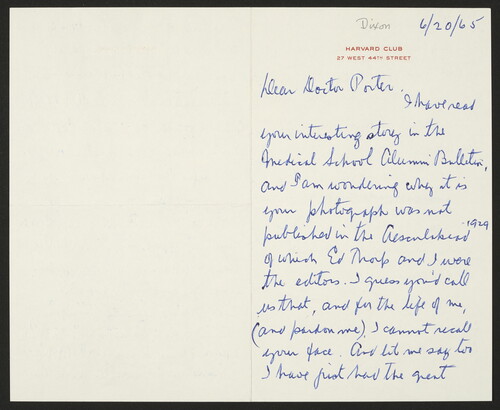 Dixon
6/20/65
HARVARD CLUB
27 WEST 44TH STREET
Dear Doctor Porter.
I have read
your interesting story in the
Medical School Alumni Bulletin,
and I am wondering why it is
your photograph was not
published in the Aesculapiad -1929
of which Ed Thorp and I were
the editors. I guess you'd call
us that, and for the life of me,
(and pardon me), I cannot recall
your face. And let me say too
I have just had the great